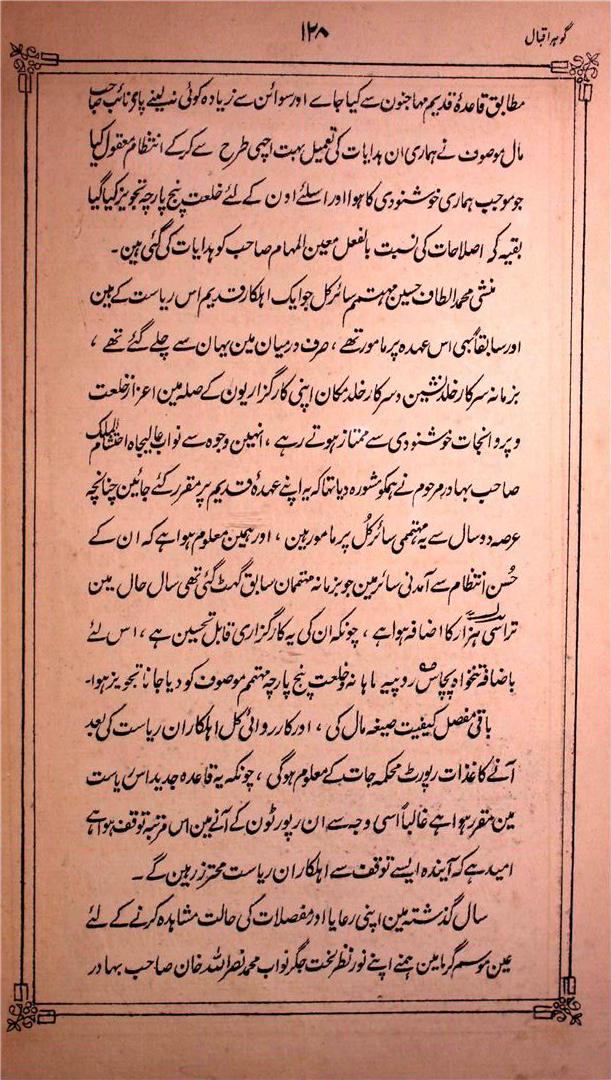 گوہر اقبال
۱۲۸
مطابق قاعدۂ قدیم مہاجنون سے کیا جاے اور سوائن سے زیادہ کوئی نہ لینے پاے نائب صاحب
مال موصوف نے ہماری ان ہدایات کی تعمیل بہت اچھی طرح سے کرکے انتظام معقول کیا
جو موجب ہماری خوشنودی کا ہوا اور اسلئے اون کے لئے خلعت پنج پارچہ تجویز کیا گیا
بقیہ کہ اصلاحات کی نسبت بالفعل معین المہام صاحب کو ہدایات کی گئی ہین۔
منشی محمد الطاف حسین مہتمم سائر کل جو ایک اہلکار قدیم اس ریاست کے ہین
اور سابقاً بھی اس عہدہ پر مامور تھے، صرف درمیان مین یہان سے چلے گئے تھے،
بزمانہ سرکار خلد نشین و سرکار خلد مکان اپنی کارگزاریون کے صلہ مین اعزاز خلعت
و پروانجات خوشنودی سے ممتاز ہوتے رہے، انہین وجوہ سے نواب عالیجاہ احتشام الملک
صاحب بہادر مرحوم نے ہمکو مشورہ دیا تھا کہ یہ اپنے عہدۂ قدیم پر مقرر کئے جائین چنانچہ
عرصہ دو سال سے یہ مہتممی سائر کُل پر مامور ہین، اور ہمین معلوم ہوا ہے کہ ان کے
حُسن انتظام سے آمدنی سائر مین جو بزمانہ منتظمان سابق گھٹ گئی تھی سال حال مین
تراسی ہزار کا اضافہ ہوا ہے، چونکہ ان کی یہ کارگزاری قابل تحسین ہے، اس لئے
باضافۂ تنخواہ پچاس روپیہ ماہانہ و خلعت پنج پارچہ مہتمم موصوف کو دیا جانا تجویز ہوا۔
باقی مفصل کیفیت صیغہ مال کی، اور کارروائی کل اہلکاران ریاست کی بعد
آنے کاغذات رپورٹ محکمہ جات کے معلوم ہوگی، چونکہ یہ قاعدہ جدید اس ریاست
مین مقرر ہوا ہے غالباً اسی وجہ سے ان رپورٹون کے آنے مین اس مرتبہ توقف ہوا ہے
امید ہے کہ آیندہ ایسے توقف سے اہلکاران ریاست محترز رہین گے۔
سال گذشتہ مین اپنی رعایا اور مفصلات کی حالت مشاہدہ کرنے کے لئے
عین موسم گرما مین ہمنے اپنے نور نظر لخت جگر نواب محمد نصر اللہ خان صاحب بہادر